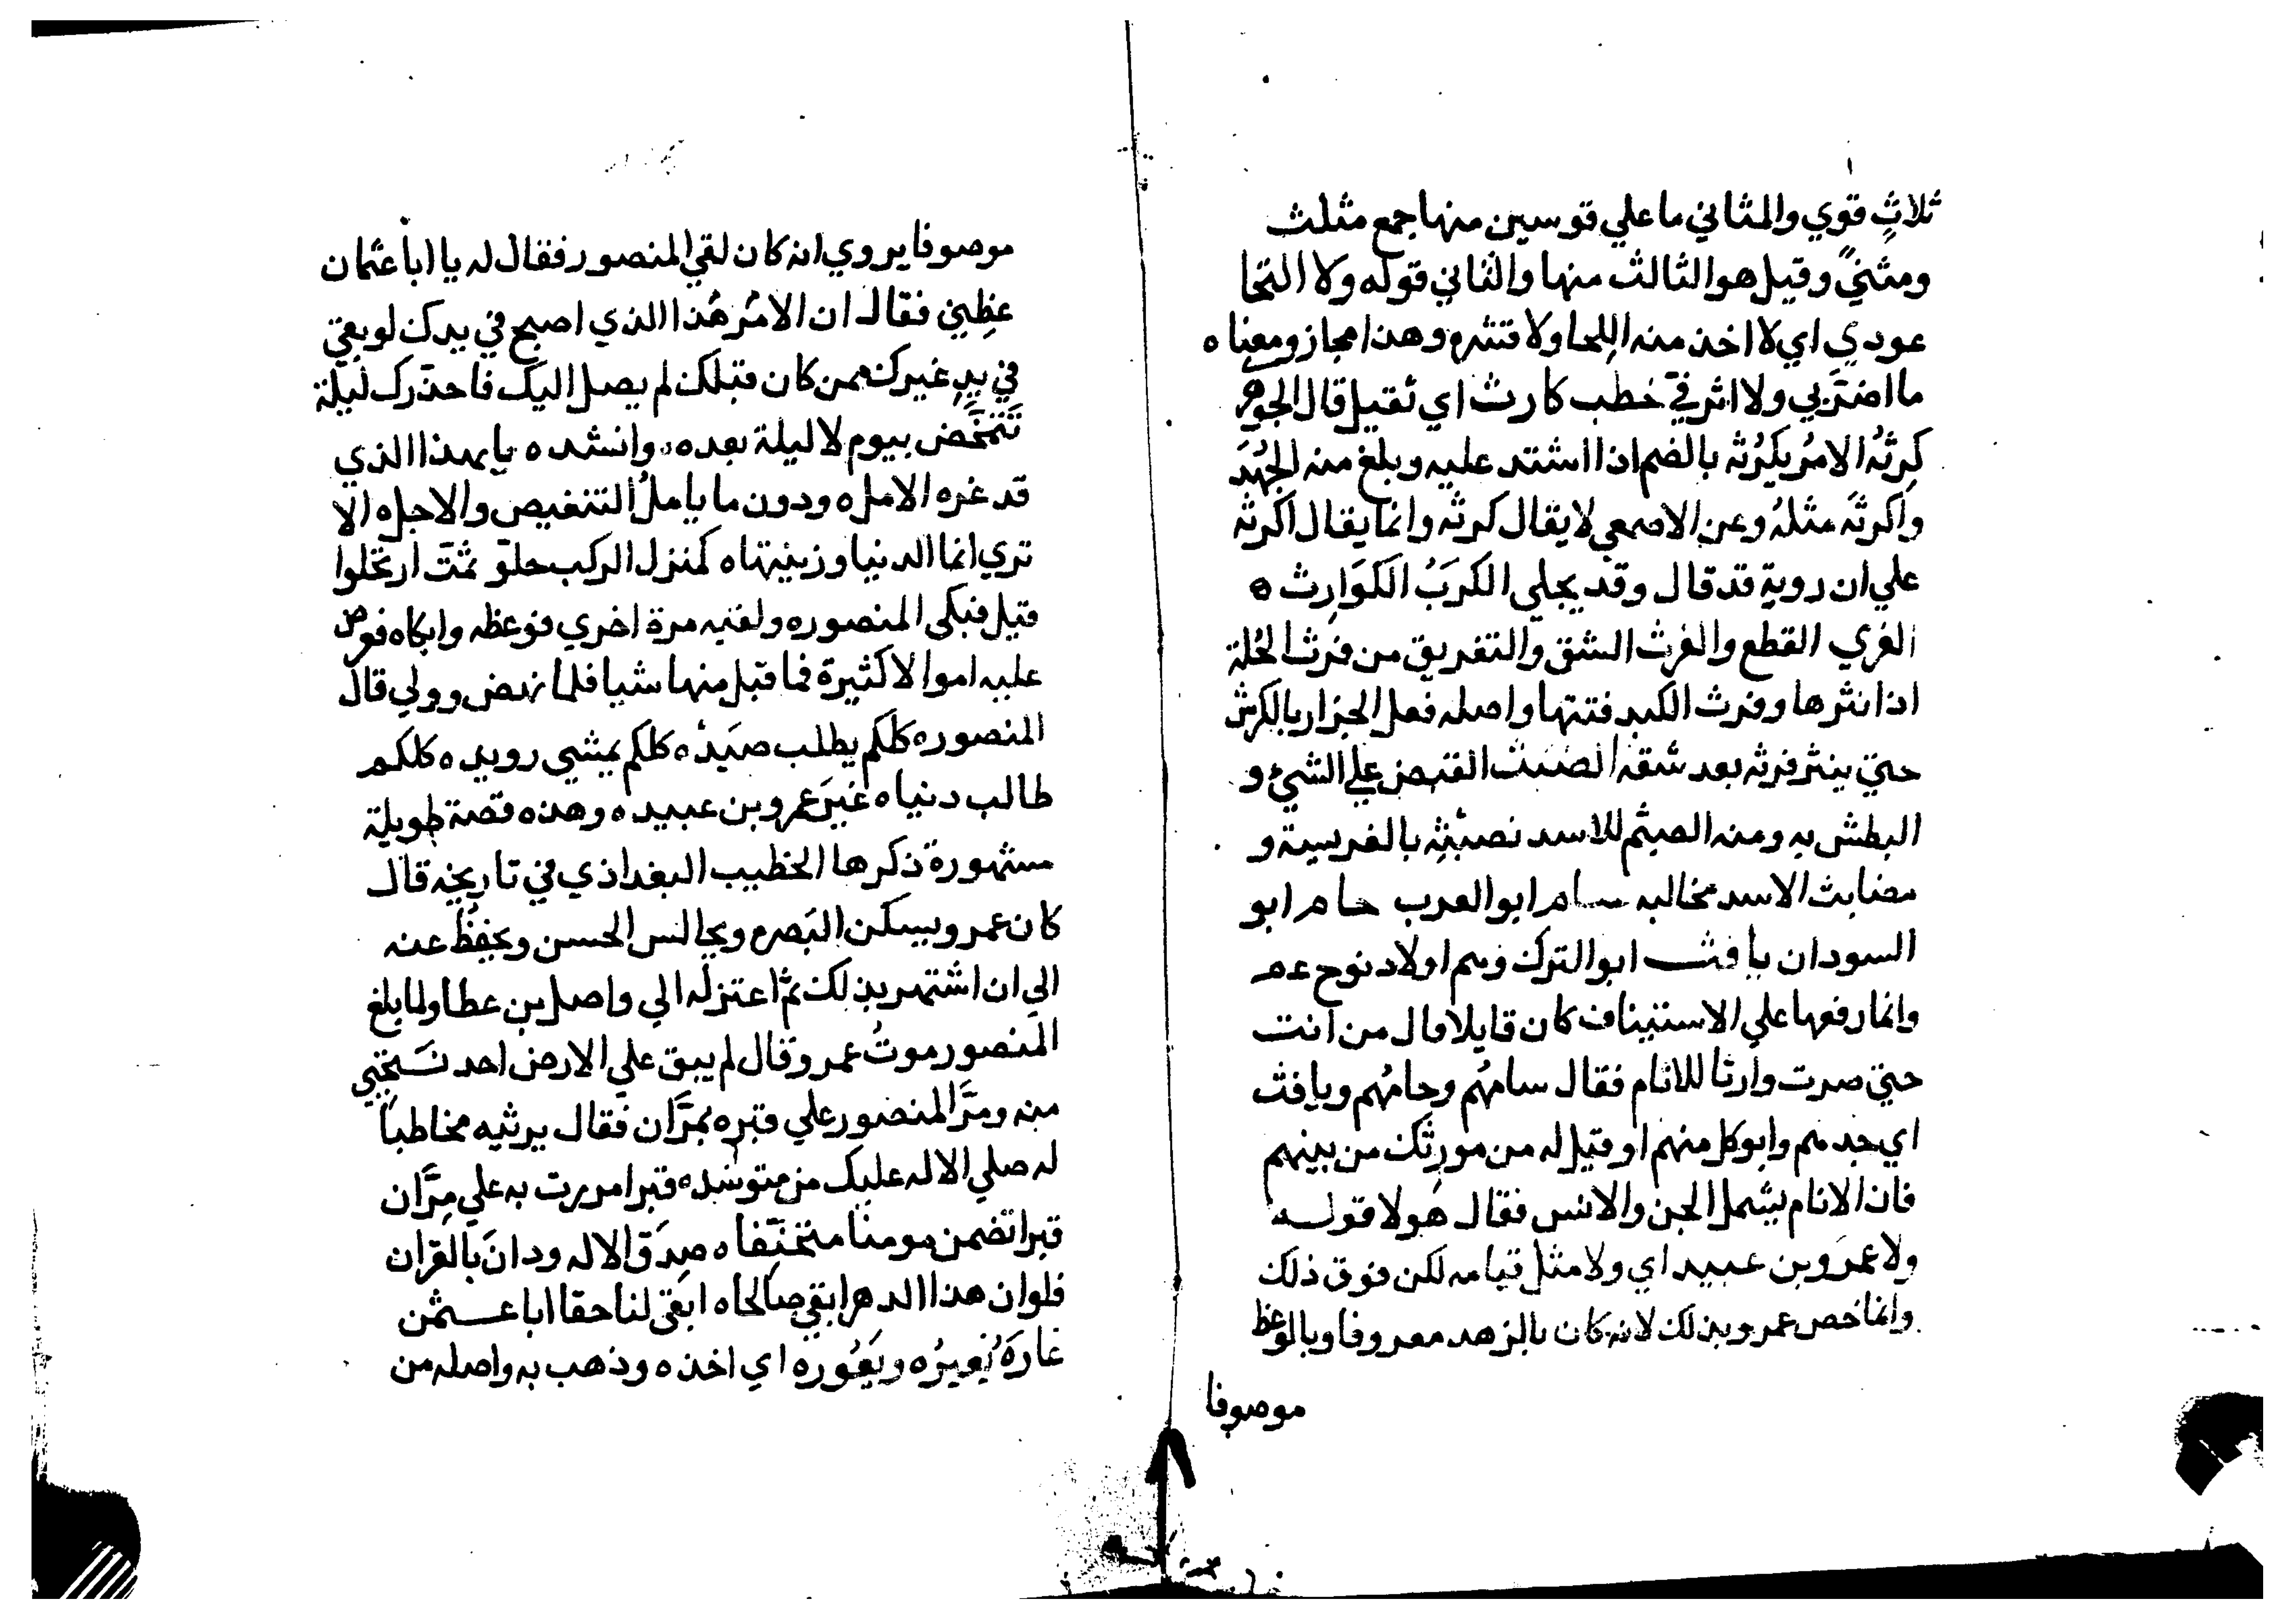 ثلاثِ قوي والمثاني ما علي قوسين منها جمع مثلث
ومثنيً وقيل هو الثالث منها والثاني قوله ولا التحا
عودي اي لا اخذ منه اللحا ولا قشره وهذا مجاز ومعناه
ما اضرّ بي ولا اثر فيّ خطب كارث اي ثقيل قال الجوهر
كرثهُ الامرُ يكرُثه بالضم اذا اشتد عليه وبلغ منه الجُهدَ
واكرثه مثلهُ وعن الاصمعي لا يقال كرثه وانما يقال اكرثه
علي ان روبة قد قال وقد يجلي الكرَبُ الكوَارِث ه
الفري القطع والفرث الشق والتفريق من فرث الجُلة
اذا نثرها وفرث الكبد فتتها واصله فعل الجزار بالكرش
حتي ينثر فرثه بعد شقه الضبث القبض علي الشيء و
البطش به ومنه الضيثم للاسد لضبثه بالفريسة و
مضابث الاسد مخالبه سام ابو العرب حام ابو
السودان يافث ابو الترك وهم اولاد نوح عم
وانما رفعها علي الاستيناف كان قايلا قال من انت
حتي صرت وارثا للانام فقال سامُهم وحامُهم ويافث
اي جدهم وابو كل منهم او قيل له من مورثك من بينهم
فان الانام يشمل الجن والانس فقال هولا قوله
ولا عمرو بن عبيد اي ولا مثل قيامه لكن فوق ذلك
وانما خص عمرو بذلك لانه كان بالزهد معروفا وبالوعظ
موصوفا
موصوفا يروي انه كان لقي المنصور فقال له يا ابا عثمان
عظِني فقال ان الامر هذا الذي اصبح في يدك لو بقي
في يدِ غيرك ممن كان قبلك لم يصل اليك فاحذرك ليلة
تَتَمَخَّض بيوم لا ليلة بعده وانشده يايهذا الذي
قد غره الامل ه ودون ما ياملُ التنغيص والاجل ه الا
تري انما الدنيا وزينتها ه كمنزل الركب حلو ثمّت ارتحلوا
قيل فبكى المنصور ه ولقيه مرة اخري فوعظه وابكاه فعرض
عليه اموالا كثيرة فما قبل منها شيا فلما نهض وولي قال
المنصور ه كلكم يطلب صيد ه كلكم يمشي رويد ه كلكم
طالب دنيا ه غيرَ عمرو بن عبيد ه وهذه قصة طويلة
مشهورة ذكرها الخطيب البغداذي في تاريخه قال
كان عمرو يسكن البصره ويجالس الحسن ويحفظُ عنه
الي ان اشتهر بذلك ثم اعتزله الي واصل بن عطا ولما بلغ
المنصور موتُ عمرو قال لم يبق علي الارض احد نستحيي
منه ومرّ المنصور علي قبره بمرّان فقال يرثيه مخاطباً
له صلي الاله عليك من متوسّد ه قبرا مررت به علي مرّان
قبرا تضمن مومنا متحنّفا ه صدق الاله ودانَ بالقران
فلو ان هذا الدهر ابقي صالحا ه ابقى لنا حقا ابا عثمن
غارَهُ يُغيرُه ويَغُوره اي اخذه وذهب به واصله من